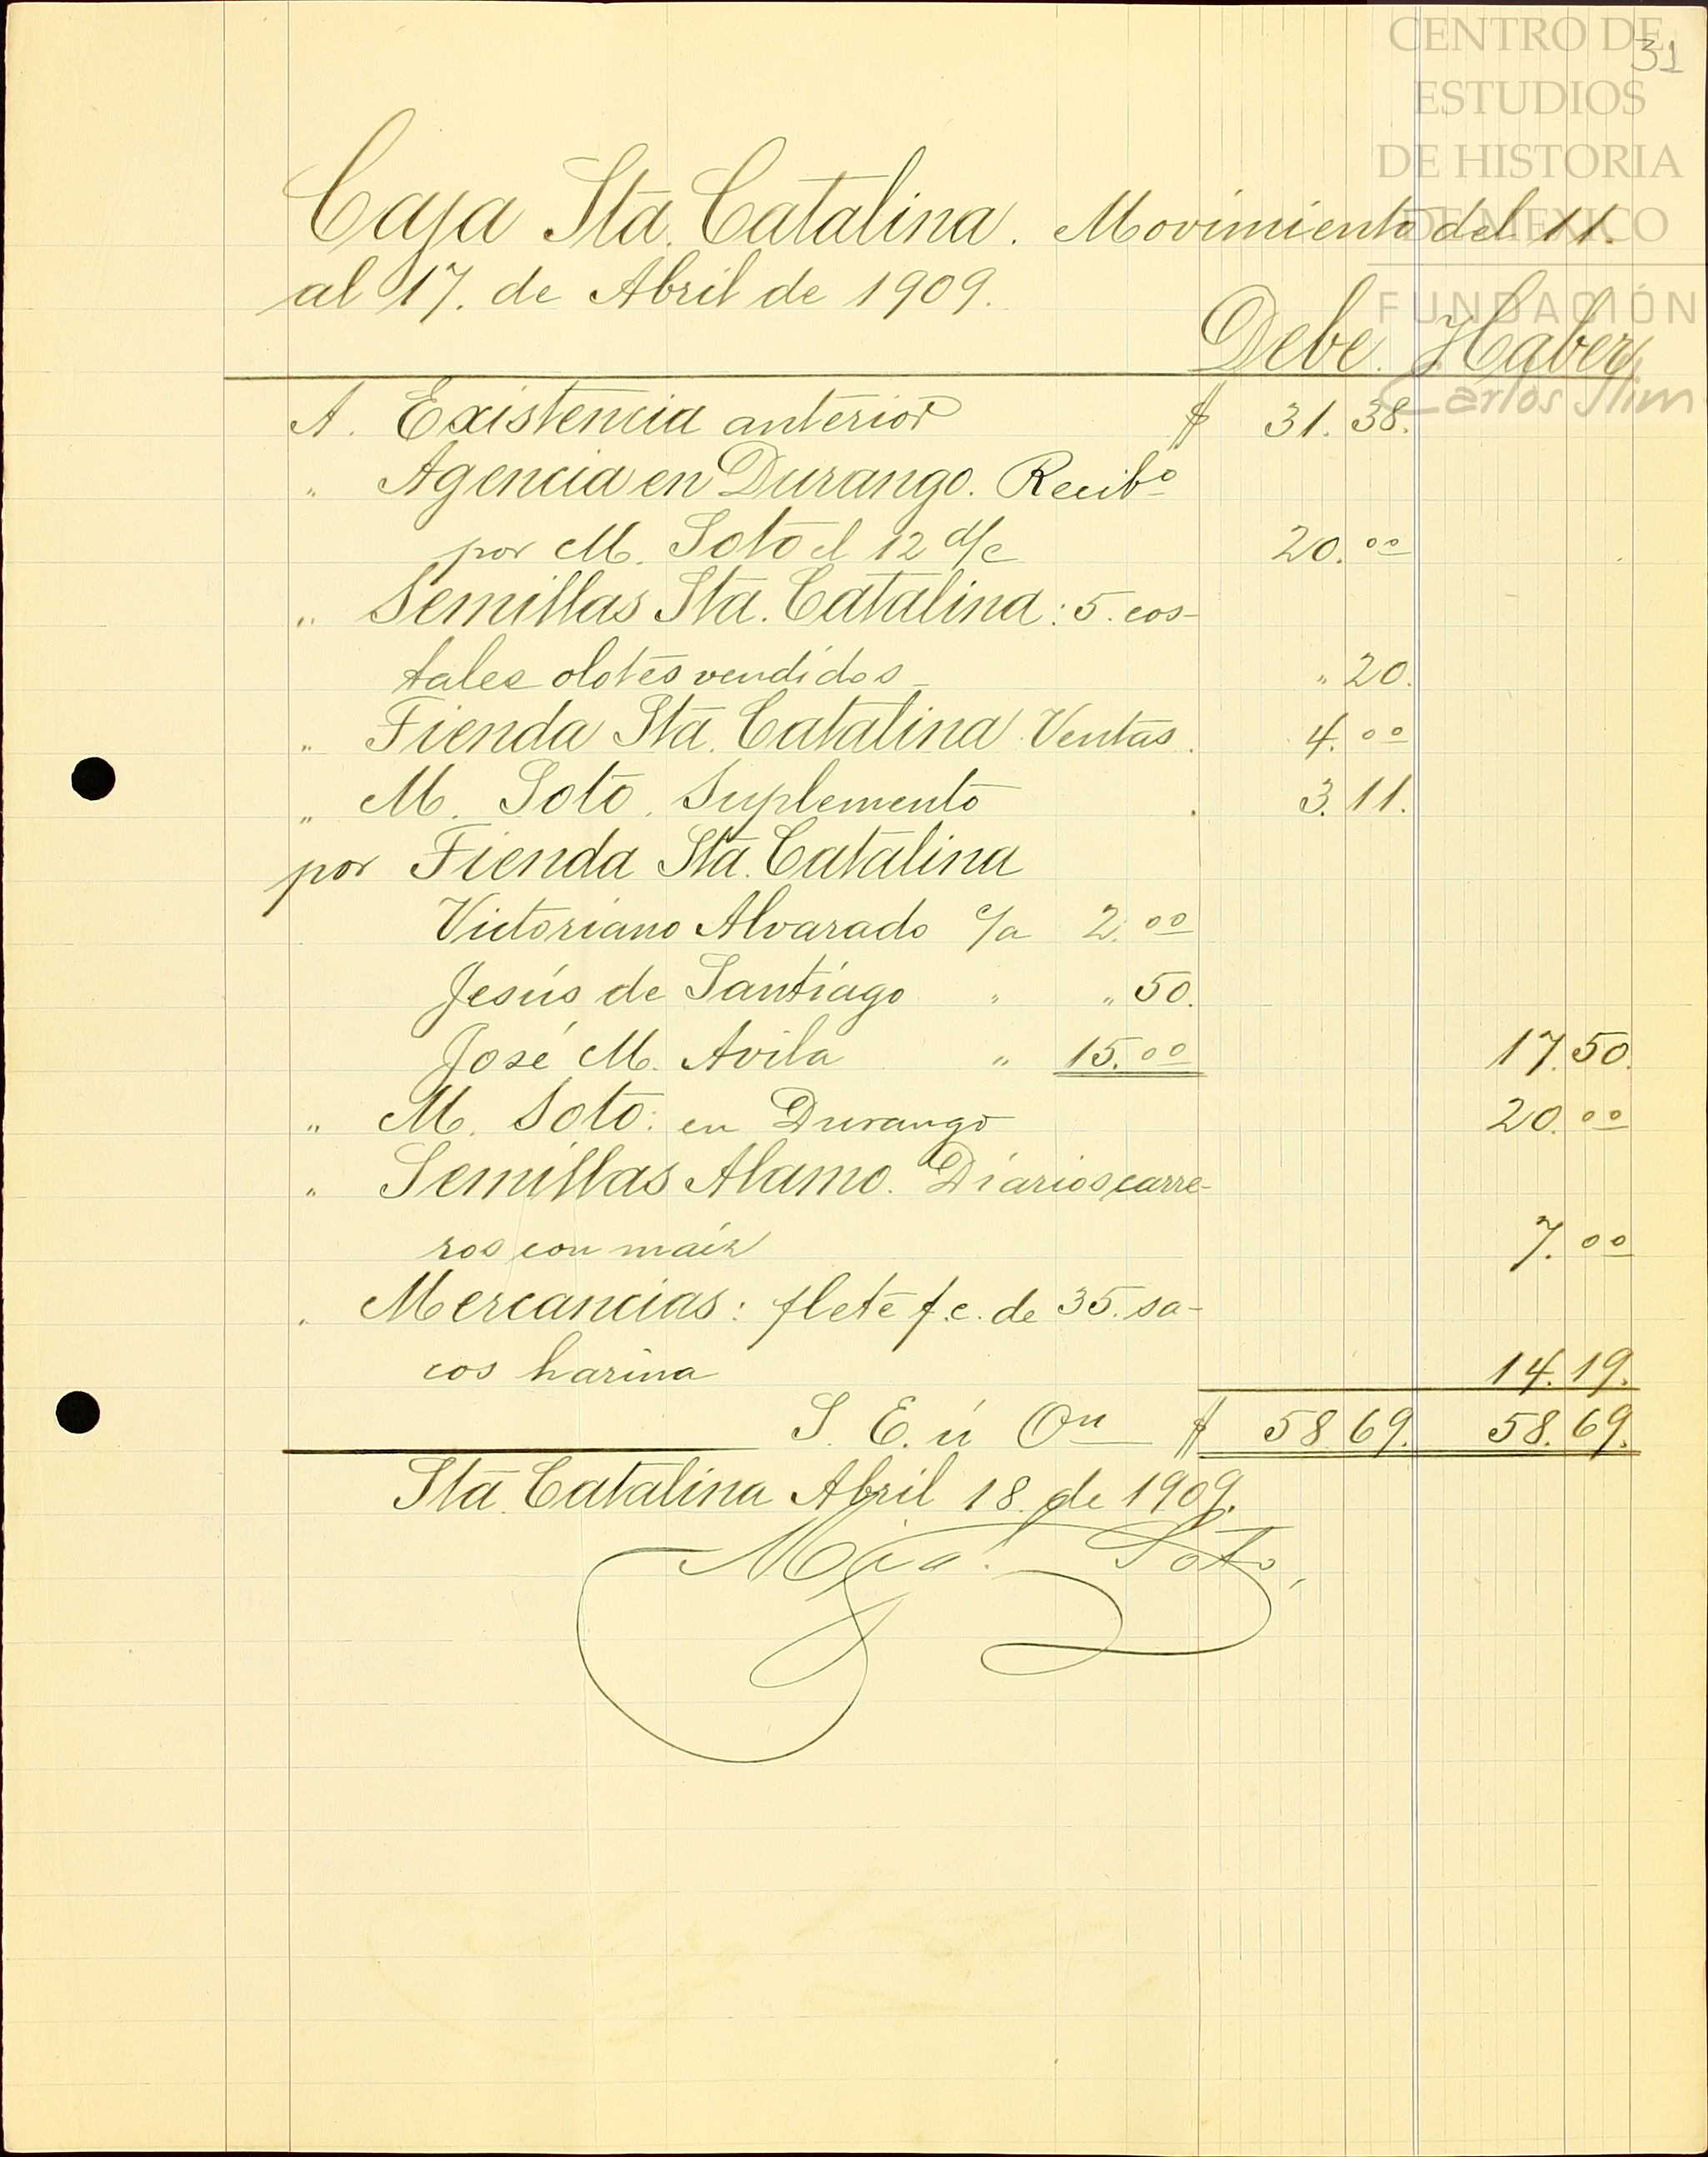 CENTRO DE
ESTUDIOS
DE HISTORIA
DE MÉXICO
FUNDACIÓN
Carlos Slim
31
Caja Sta. Catalina. Movimiento del 11.
al 17. de Abril de 1909.
Debe. Haber
A. Existencia anterior $ 31. 38.
" Agencia en Durango. Recibo
por M. Soto el 12 d/c 20. 00
" Semillas Sta. Catalina: 5. cos-
tales olotes vendidos " 20.
" Tienda Sta. Catalina Ventas. 4. 00
" M. Soto. Suplemento . 3. 11.
por Tienda Sta. Catalina
Victoriano Alvarado c/a 2. 00
Jesús de Santiago " " 50.
José M. Avila " 15. 00 17. 50.
" M. Soto: en Durango 20. 00
" Semillas Alamo. Diarios carre-
ros con maíz 7. 00
" Mercancias: flete f.c. de 35. sa-
cos harina 14. 19.
S. E. ú On $ 58 69. 58. 69.
Sta. Catalina Abril 18. de 1909.
Migl. Soto,